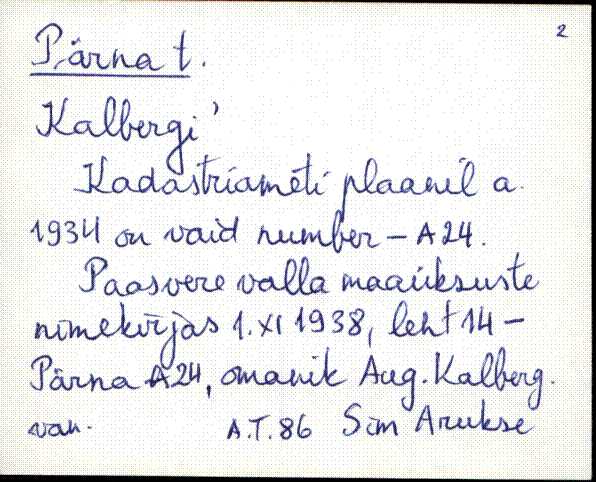 2
Pärna t.
Kalbergi'
Kadastriameti plaanil a.
1934 on vaid number – A24.
Paasvere valla maaüksuste
nimekirjas 1.XI 1938, leht 14 –
Pärna A24, omanik Aug. Kalberg.
van. A.T. 86 Sim Arukse